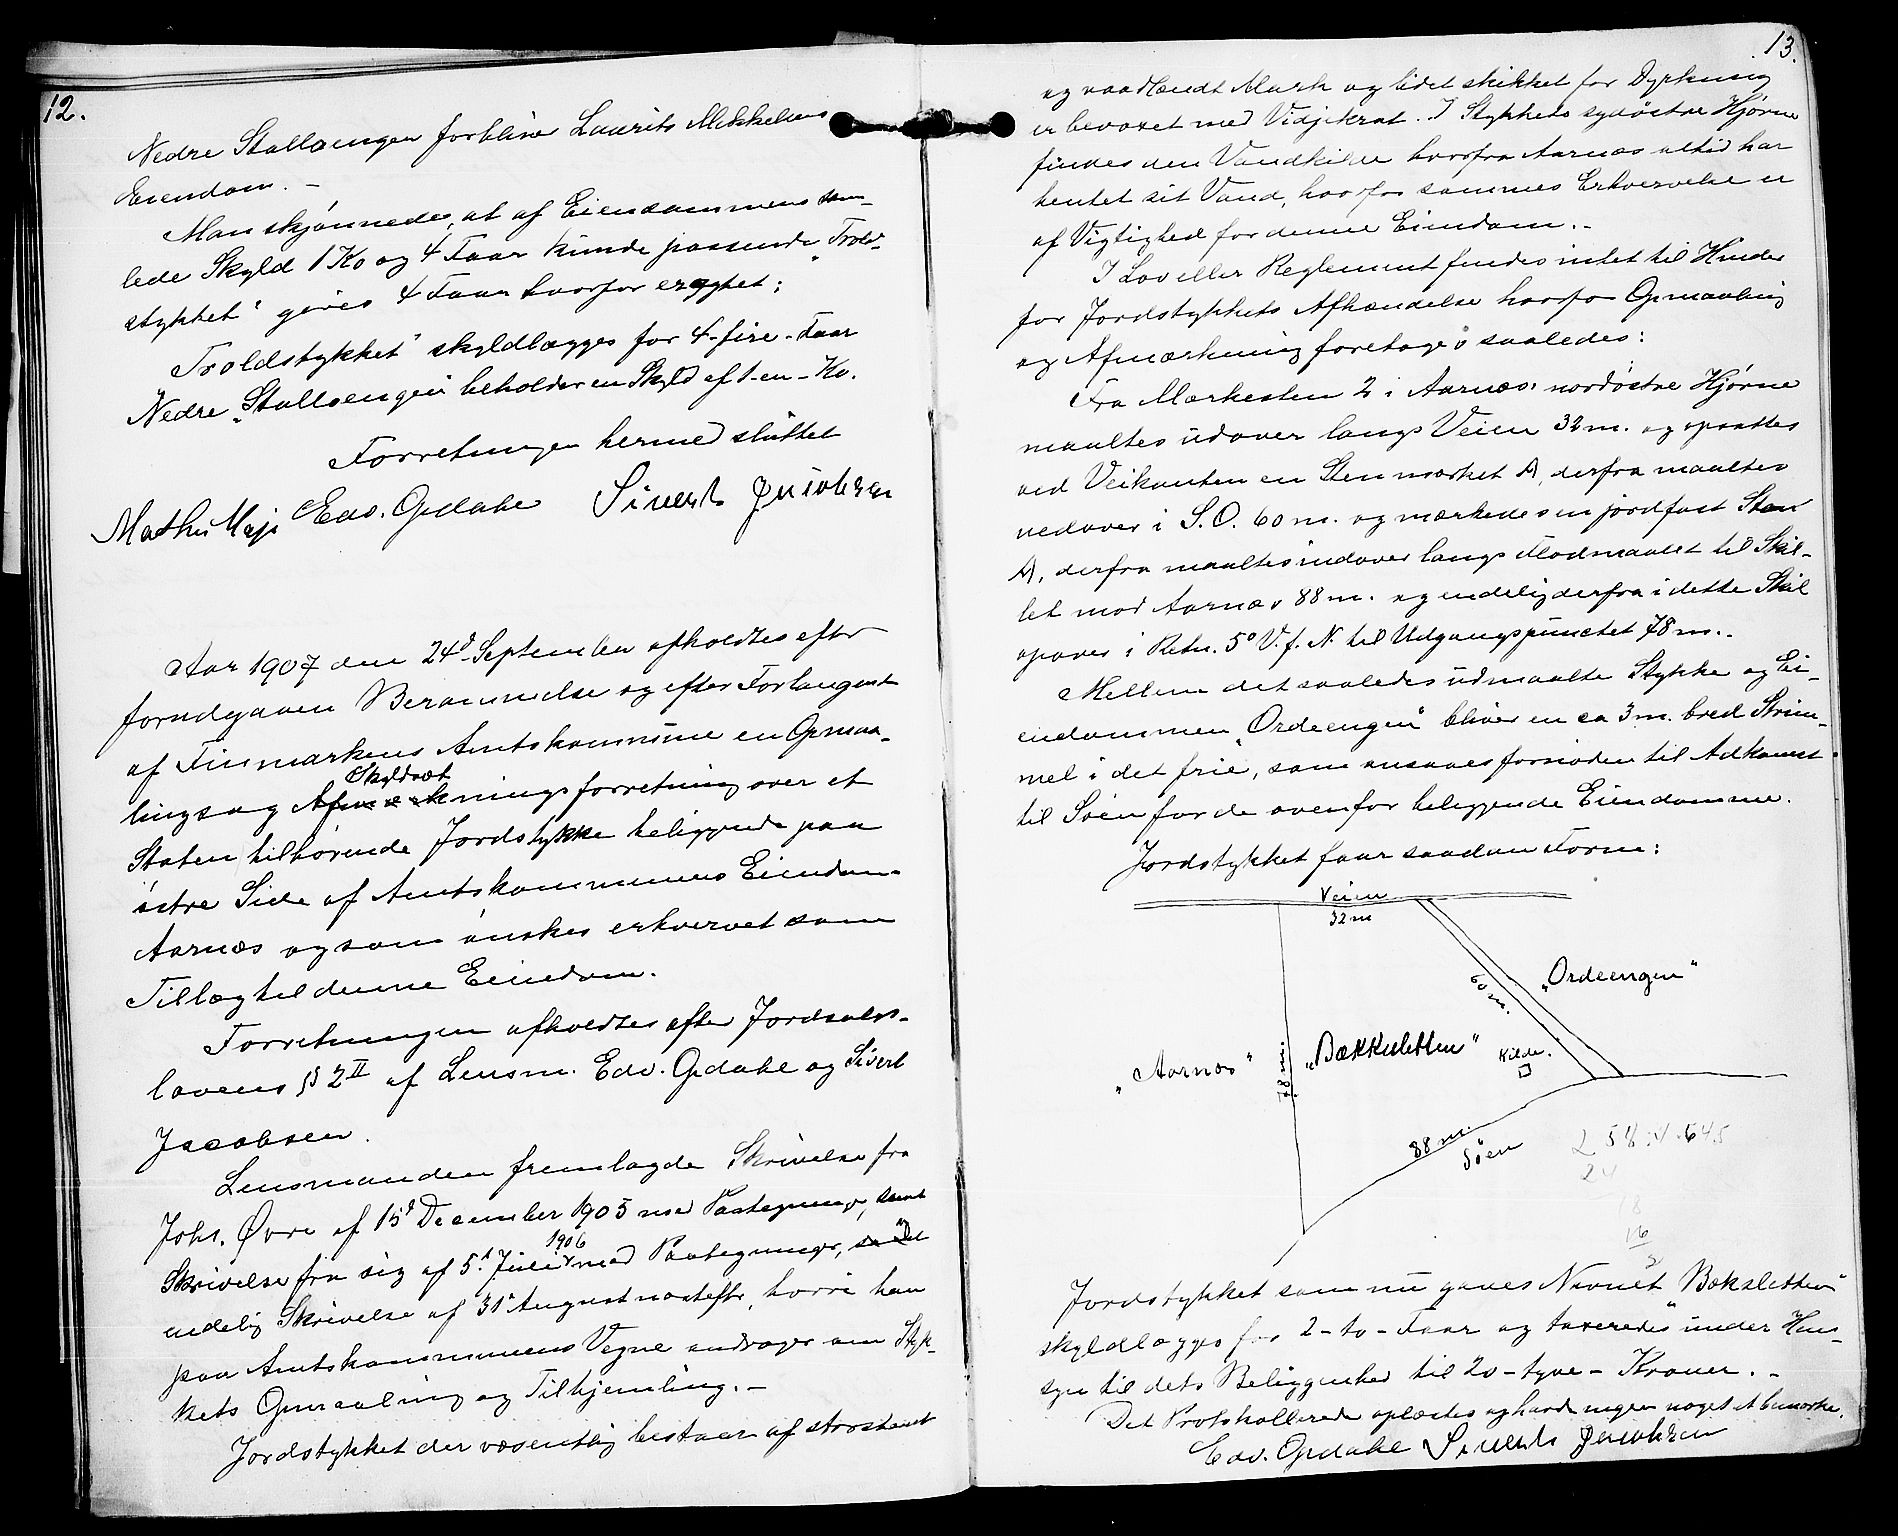 12.
Nedre Stallængen forbliver Laurits Mikkelsens
Eiendom. –
Man skjønnede, at af Eiendommens sam-
lede Skyld 1 Ko og 4 Faar kunde passende „Trold-
stykket“ gives 4 Faar hvorfor eragtet:
Troldstykket“ skyldlægges for 4-fire-Faar
Nedre „Stallængen beholder en Skyld af 1-en-Ko.
Forretningen hermed sluttet
Edv. Opdahl Siverts Jacobsen
Aar 1907 den 24d September afholdtes efter
forudgaaen Berammelse og efter Forlangende
af Finmarkens Amtskommune en Opmaa-
lings og Afmærknings forretning over et
Skyldsæt
Staten tilhørende Jordstykke beliggende paa
østre Side af Amtskommunens Eiendom
Aarnæs og som ønskes erhvervet som
Tillæg til denne Eiendom.
Forretningen afholdtes efter Jordsalgs-
lovens § 2 II af Lensm. Edv. Opdahl og Sivert
Jacobsen.
Lensmanden fremlagde Skrivelse fra
Johs. Øvre af 15d December 1905 med Paategninger, samt
Skrivelse fra sig af 5d Juli 1906 med Paategninger,
endelig Skrivelse af 31d August næstefter, hvori han
paa Amtskommunens Vegne andrager om Styk-
kets Opmaaling og Tilhjemling. –
Jordstykket der væsentlig bestaar af
13.
og vaadlændt Mark og lidet skikket for Dyrkning
er bevoxet med Vidjekrat. I Stykkets sydøstre Hjørne
findes den Vandkilde hvorfra Aarnæs altid har
hentet sit Vand, hvorfor sammes Erhvervelse er
af Vigtighed for denne Eiendom. –
I Lov eller Reglement findes intet til Hinder
for Jordstykkets Afhændelse hvorfor Opmaaling
og Afmærkning foretoges saaledes:
Fra Mærkesten 2 i Aarnæs nordøstre Hjørne
maaltes udover langs Veien 32 m. og opsattes
ved Veikanten en Sten mærket A, derfra maaltes
nedover i S.O. 60 m. og mærkedes en jordfast Sten
A, derfra maaltes indover langs Flodmaalet til Skil-
let mod Aarnæs 88 m. og endelig derfra i dette Skil
opover i Retn. 5° V. f. N. til Udgangspunctet 78 m. -
Mellem det saaledes udmaalte Stykke og Ei-
endommen „Ordeengen“ bliver en ca 3 m. bred Strim-
mel i det frie, som ansaaes fornøden til Adkomst
til Søen for de ovenfor beliggende Eiendomme.
Jordstykket faar saadan Form:
Veien
32 m
60 m.
„Ordeengen“
„Aarnæs“
78 m.
„Bækkesletten“
Kilde.
88 m.
Søen
24
18
16
Jordstykket som nu gaves Navnet „Bæksletten“
skyldlægges for 2-to-Faar og taxeredes under Hen-
syn til dets Beliggenhed til 20-tyve-Kroner. -
Det Protokollerede oplæstes og havde ingen noget at bemærke.
Edv. Opdahl Siverts Jacobsen